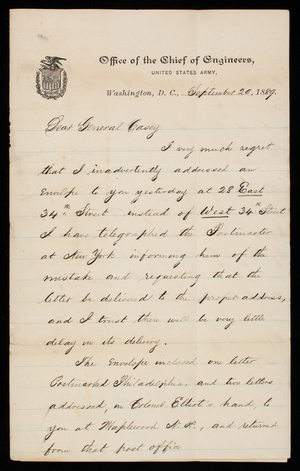 Office of the Chief of Engineers,
UNITED STATES ARMY,
Washington, D. C., September 20, 1889.
Dear General Casey
I very much regret
that I inadvertently addressed an
Envelope to you yesterday at 28 East
34th Street instead of West 34th Street
I have telegraphed the Postmaster
at New York informing him of the
mistake and requesting that the
letter be delivered to the proper address,
and I trust there will be very little
delay in its delivery.
The Envelope enclosed one letter
Postmarked Philadelphia, and two letters
addressed, in Colonel Elliot's hand, to
you at Maplewood N.H., and returned
from that post office